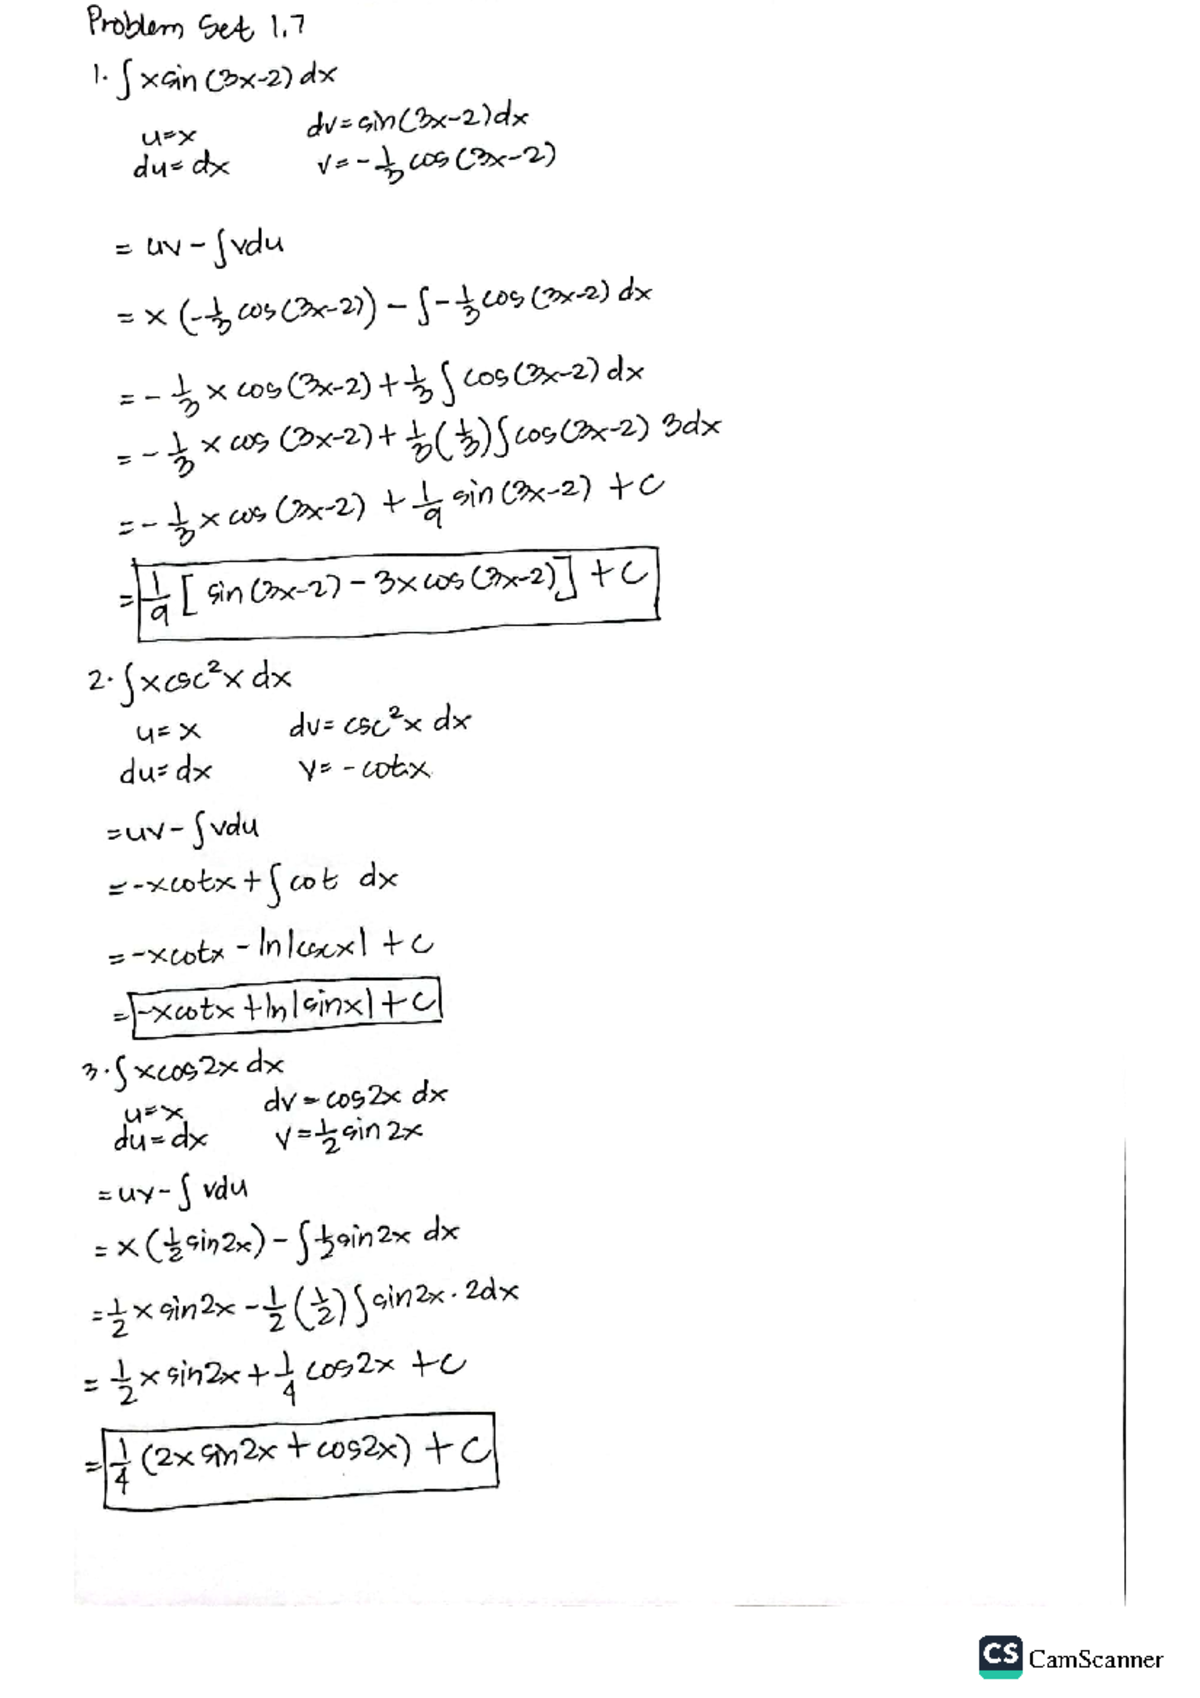 Problem Set 1.7
1. ∫ x sin (3x-2) dx
u=x dv = sin(3x-2)dx
du= dx v = -1/3 cos (3x-2)
= uv - ∫vdu
= x (-1/3 cos(3x-2)) - ∫-1/3 cos (3x-2) dx
= - 1/3 x cos(3x-2) + 1/3 ∫ cos(3x-2) dx
= - 1/3 x cos (3x-2) + 1/3 (1/3) ∫ cos(3x-2) 3dx
= - 1/3 x cos (3x-2) + 1/9 sin (3x-2) + C
= 1/9 [ sin (3x-2) - 3x cos (3x-2)] + C
2. ∫ x csc²x dx
u= x dv= csc²x dx
du= dx v= -cotx
= uv - ∫vdu
= -xcotx + ∫ cot dx
= -xcotx - ln|cscx| + C
= -xcotx + ln|sinx| + C
3. ∫ xcos2x dx
u=x dv = cos2x dx
du = dx v = 1/2 sin 2x
= uv - ∫ vdu
= x (1/2 sin2x) - ∫ 1/2 sin2x dx
= 1/2 x sin2x - 1/2 (1/2) ∫ sin2x · 2dx
= 1/2 x sin2x + 1/4 cos2x + C
= 1/4 (2x sin2x + cos2x) + C
CS CamScanner